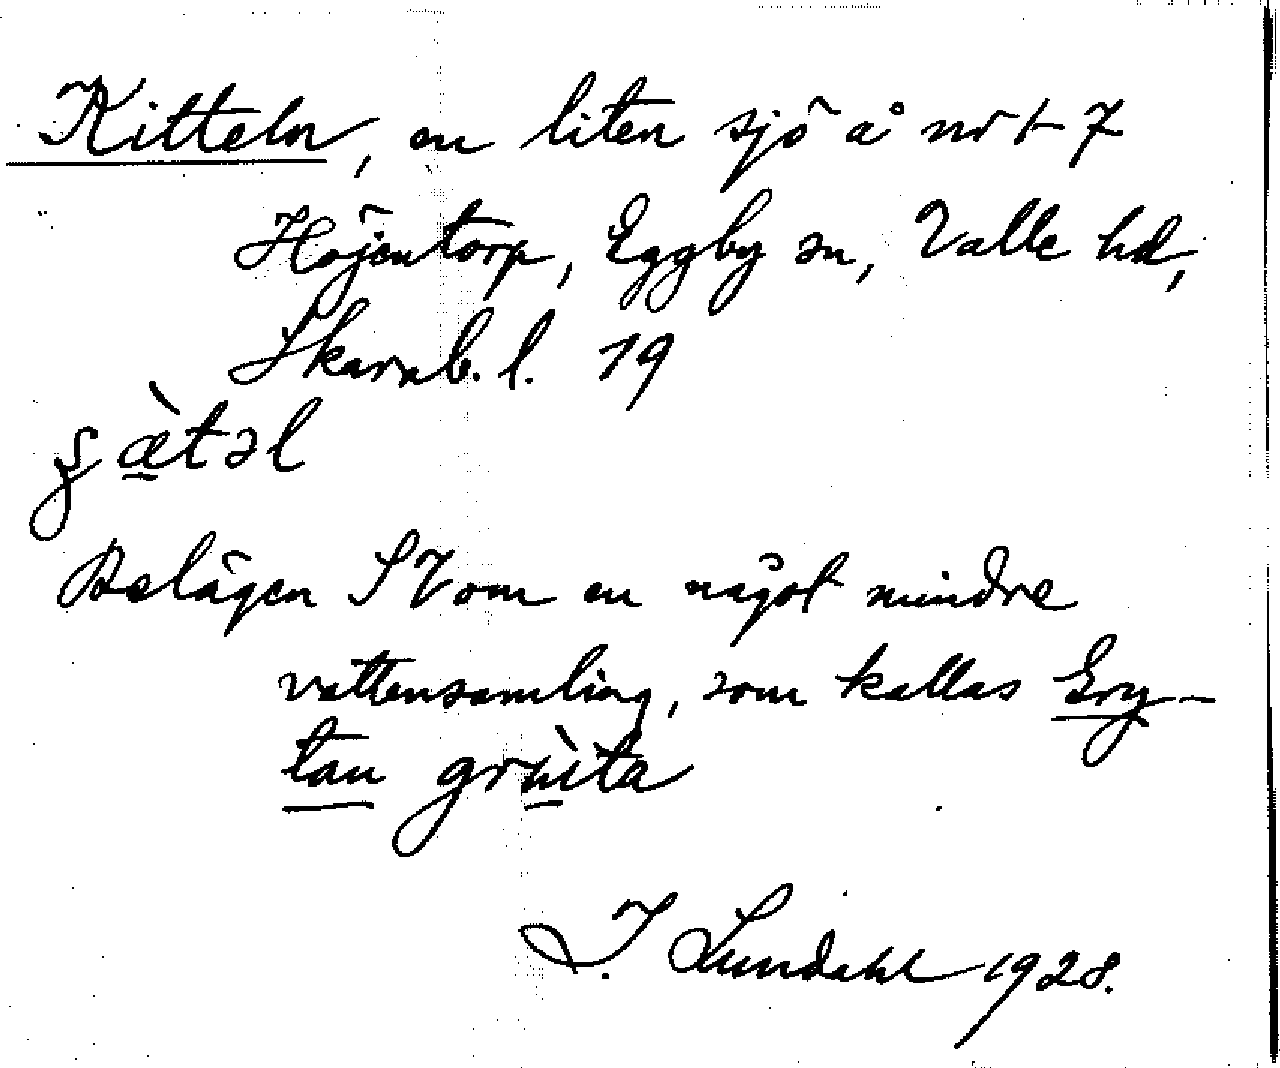 Kitteln, en liten sjö å nr 1-7
Höjentorp, Eggby sn, Valle hd,
Skarab. l. 19
ʂæ̀təl
Belägen SV om en något mindre
vattensamling, som kallas Gry-
tan grùta
I. Lundahl 1928.